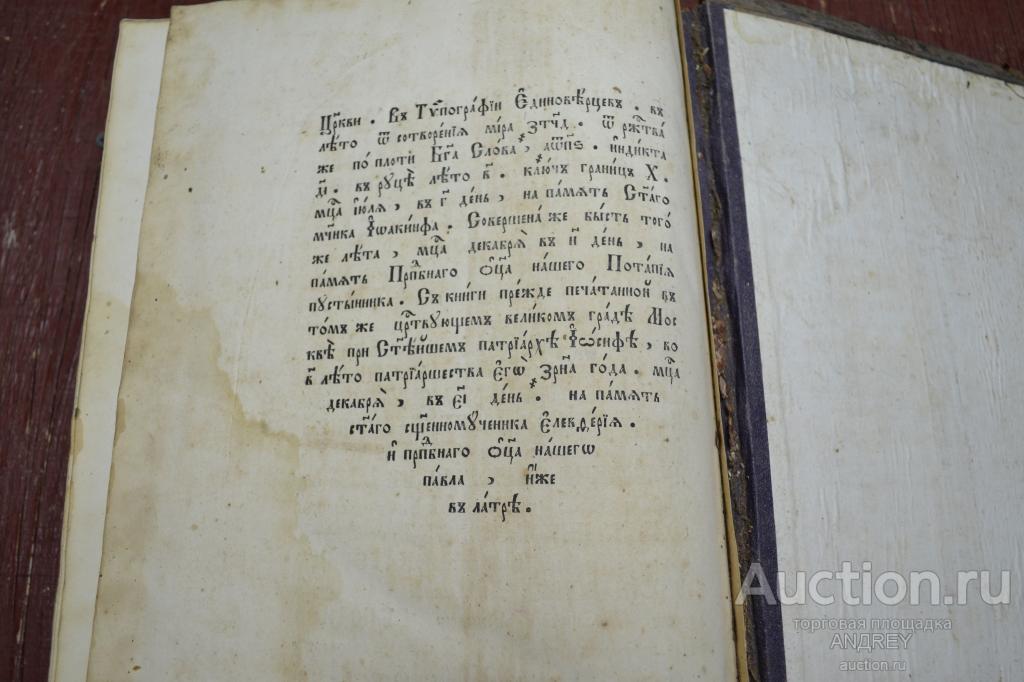 Цр҃кви . Въ Тѷпогра́фїи Є҆диновѣ́рцевъ . въ
лѣ́то ѿ сотворе́нїѧ мі́ра ҂зтч҃д . ѿ рж҃тва̀
же по́ пло́ти Бг҃а Сло́ва , ҂аѿп҃ѕ . и҆ндикта
д҃і . въ руцѣ̀ лѣ́то в҃ . клю́чь грани́цъ Х .
мц҃а і҆ю́лѧ , въ г҃ де́нь , на па́мѧть Ст҃а́го
мч҃ника І҆ѡаки́нфа . Соверше́на же бы́сть того́
же лѣ́та , мц҃а декабрѧ̀ въ и҃ де́нь , на
па́мѧть Прпⷣбнаго ѻ҆ц҃а на́шего Пота́пїѧ
пусты́нника . Съ кни́ги пре́жде печа́танной въ
то́мъ же црⷭ҇твующемъ вели́комъ гра́дѣ Мос
квѣ̀ при Ст҃ѣ́йшемъ патрїа́рхѣ І҆ѡ́сифѣ , во
в҃ лѣ́то патрїа́ршества є҆гѡ̀ ҂зрн҃а го́да . мц҃а
декабрѧ̀ , въ є҃і де́нь . на па́мѧть
ст҃а́го сщ҃енному́ченика Є҆левѳе́рїѧ .
и҆ прпⷣбнаго ѻ҆ц҃а на́шегѡ
па́вла , и҆́же
въ ла́трѣ .
Auction.ru
торговая площадка
ANDREY
auction.ru